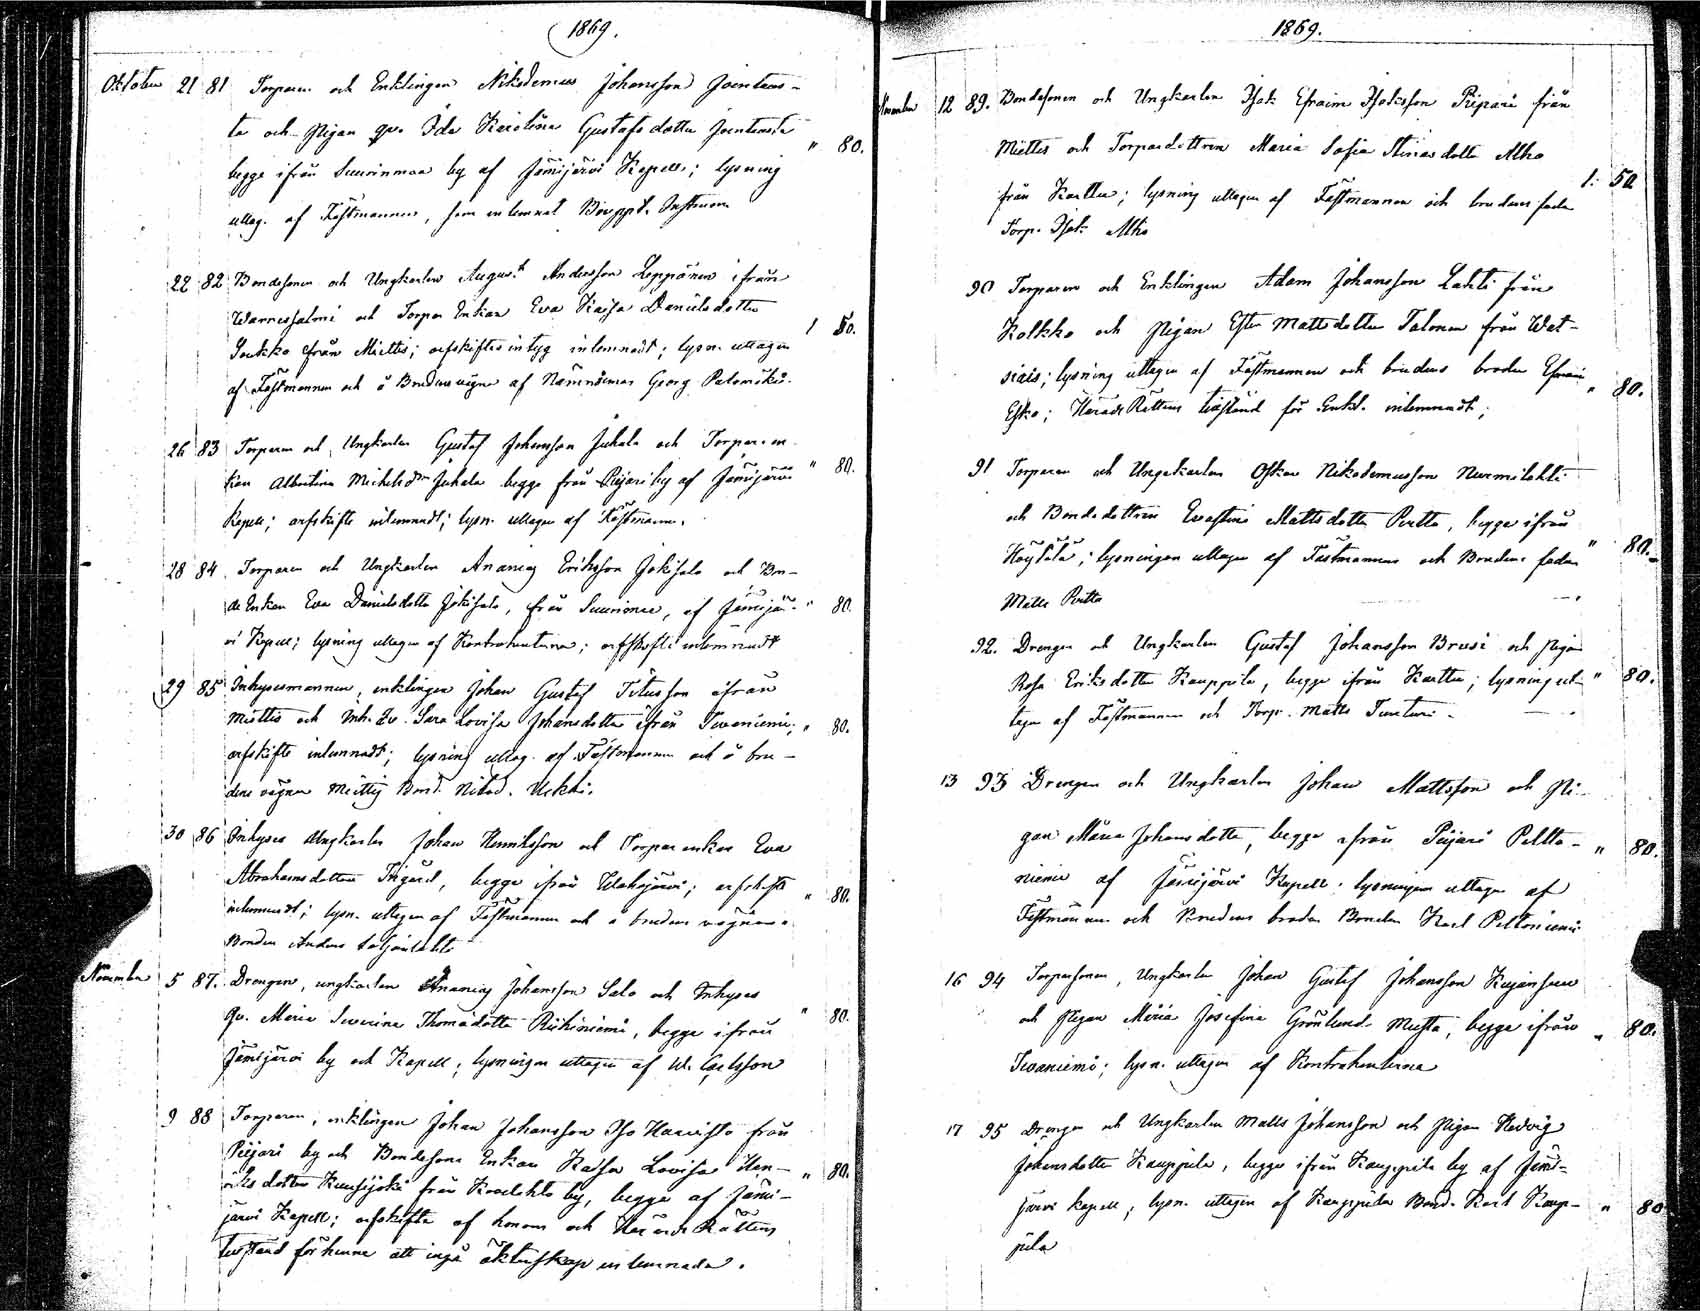 1869.
Oktober 21 81 Torparen och Enklingen Nikodemus Johansson Jointaus-
ta och Pigan qv. Ida Karolina Gustafsdotter Jointausta
begge ifrån Suurinmaa by af Jämijärvi Kapell; lysning " 80.
uttag. af Fästmannen, som inlemnat Bouppt. Instrum
22 82 Bondesonen och Ungkarlen August Andersson Leppänen ifrån
Warvessalmi och Torpar Enkan Eva Kajsa Danielsdotter
Soukko från Miettis; arfskiftesintyg inlemnadt; lysn. uttagen 1 50.
af Fästmannen och å Brudens vägnar af Nämndeman Georg
26 83 Torparen och Ungkarlen Gustaf Johansson Juhala och Torparen-
kan Albertina Michelsdtr Juhala begge från Pitjari by af Jämijärvi " 80.
Kapell; arfskifte inlemnadt; lysn. uttagen af Fästmann.
28 84 Torparen och Ungkarlen Ananias Eriksson Jokisalo och Bon-
de Enkan Eva Danielsdotter Jokisalo, från Suurimaa, af Jämijär- " 80.
vi Kapell; lysning uttagen af Kontrahenterne; arfskifte inlemnadt
29 85 Inhysesmannen, enklingen Johan Gustaf Titusson ifrån
Miettis och Inh. Qv. Sara Lovisa Johansdotter ifrån Tevaniemi; " 80.
arfskifte inlemnadt; lysning uttag. af Fästmannen och å bru-
dens vägnar Miettis Bond. Nikod. Uckki.
30 86 Inhyses Ungkarlen Johan Henriksson och Torpar enkan Eva
Abrahamsdotter Trigård, begge ifrån Wahojärvi; arfskifte " 80.
inlemnadt; lysn. uttagen af Fästmannen och å brudens vägnar
Bonden Anders
November 5 87. Drengen, ungkarlen Ananias Johansson Salo och Inhyses
Qv. Maria Severina Thomadotter Riihiniemi, begge ifrån " 80.
Jämijärvi by och Kapell; lysningen uttagen af W. Carlsson
9 88 Torparen, enklingen Johan Johansson Iso Haavisto från
Pitjari by och Bondesons Enkan Kajsa Lovisa Hen-
riks dotter Kuusijoki från by, begge af Jämi- " 80.
järvi Kapell; arfskifte af honom och Härads Rättens
tillstånd för henne att ingå äktenskap inlemnade.
1869.
November 12 89. Bondesonen och Ungkarlen Isak Efraim Isaksson Ripari från
Miettis och Torpardottren Maria Sofia Isaksdotter Alho
från Karttu; lysning uttagen af Fästmannen och brudens fader 1: 50
Torp. Isak Alho
90 Torparen och Enklingen Adam Johansson Lahti från
Kolkko och Pigan Ester Mattsdotter Talonen från Wat-
siais; lysning uttagen af Fästmannen och brudens broder Efraim " 80.
Esko; Härads Rättens tillstånd för Enkl. inlemnadt;
91 Torparen och Ungkarlen Oskar Nikodemusson Nurmilahti
och Bondedottren Evastina Mattsdotter Pertta, begge ifrån
Höytölä; lysningen uttagen af Fästmannen och Brudens fader " 80.
Matts Pertta
92. Drengen och Ungkarlen Gustaf Johansson Brusi och Pigan
Rosa Eriksdotter Kauppila, begge ifrån Karttu; lysning ut- " 80.
tagen af Fästmannen och Torp. Matts Tunturi.
13 93 Drengen och Ungkarlen Johan Mattsson och Pi-
gan Maria Johansdotter, begge ifrån Pitjari Pelto- " 80.
niemi af Jämijärvi Kapell: lysningen uttagen af
Fästmannen och Brudens broder Bonden Karl Peltoniemi
16 94 Torparsonen, Ungkarlen Johan Gustaf Johansson Kujansuu
och Pigan Maria Josefina Grönlund Musta, begge ifrån " 80.
Tevaniemi; lysn. uttagen af Kontrahenterna
17 95 Drengen och Ungkarlen Matts Johansson och Pigan Hedvig
Johansdotter Kauppila, begge ifrån Kauppila by af Jämi-
järvi Kapell; lysn. uttagen af Kauppila Bond. Karl Kaup- " 80
pila